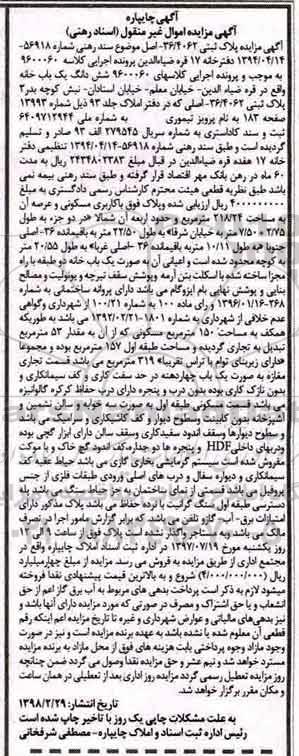 آگهی چاپاره
آگهی مزایده اموال غیر منقول (اسناد رهنی)
آگهی مزایده پلاک ثبتی ۳۶/۴۰۶۲-اصل موضوع سند رهنی شماره ۵۶۹۱۸-
۱۳۹۴/۰۴/۱۴ دفترخانه ۱۷ قره ضیاالدین پرونده اجرایی کلاسه ۹۶۰۰۰۶۰
به موجب و پرونده اجرایی کلاسهای ۹۶۰۰۰۶۰ شش دانگ یک باب خانه
واقع در قره ضیاء الدین- خیابان معلم- خیابان استادان- نبش کوچه بدر۲
پلاک ثبتی ۳۶/۴۰۶۲-اصلی که در دفتر املاک جلد ۹۳ ذیل شماره ۱۳۹۹۳
صفحه ۱۸۳ به نام پرویز تیموری به شماره ملی ۶۴۰۹۷۱۲۹۴۴
ثبت و سند کاداستری به شماره سریال ۲۷۹۵۴۵ الف ۹۳ صادر و تسلیم
گردیده است و طبق سند رهنی شماره ۵۶۹۱۸-۱۳۹۴/۰۴/۱۴ تنظیمی دفتر
خانه ۱۷ هفده قره ضیاالدین در قبال مبلغ ۲۴۳۴۸۰۲۳۸۳ ریال به مدت
۶۰ ماه در رهن بانک مهر اقتصاد قرار گرفته و طبق سند رهنی بیمه نمی
باشد طبق نظریه قطعی هیئت محترم کارشناس رسمی دادگستری به مبلغ
۴۰۰۰۰۰۰۰۰۰ ریال ارزیابی شده وپلاک فوق باکاربری مسکونی و عرصه آن
به مساحت ۲۱۸/۲۴ مترمربع و حدود اربعه آن شمالا "در دو جزء، به طول
۲/۷۵-۷/۵۰ متر، خیابان شرقا" به طول ۲۲/۵۰ متر به باقیمانده ۳۶-اصلی
جنوبا" به طول ۱۰/۱۱ متر به باقیمانده ۳۶ -اصلی غربا" به طول ۲۰/۵۵ متر
به کوچه محدود شده است و اعیانی آن به صورت یک باب خانه دو طبقه با راه
مجزا ساخته شده با اسکلت بتن آرمه وپوشش سقف تیرچه و یونولیت و مصالح
بنایی و پوشش نهایی بام ایزوگام می باشد دارای پروانه ساختمانی به شماره
۲۶۸-۱۳۹۶/۰۱/۱۶ و رای ماده ۱۰۰ به شماره ۱۰۰/۲۱ از شهرداری و گواهی
عدم خلافی از شهرداری به شماره ۱۸۰۱-۱۳۹۲/۰۲/۲۱ می باشد به طوریکه
همکف به مساحت ۱۵۰ مترمربع مسکونی که از آن به مقدار ۵۳ مترمربع
تبدیل به تجاری گردیده و مساحت طبقه اول ۱۵۷ مترمربع بوده و مجموعا
"دارای زیربنای توام با تراس تقریبا" ۳۱۹ مترمربع می باشد قسمت تجاری
مغازه به صورت یک باب چهاردهنه در حد سفت کاری و کف سیمانکاری و
بدون نازک کاری بوده بدون درب و پنجره دارای درب حفاظ کرکره گالوانیزه
می باشد قسمت مسکونی طبقه اول به صورت سه خوابه و سالن نشیمن و
آشپزخانه بدون کابینت وسطوح دیوار و کف کاشیکاری و سرامیک می باشد
و سطوح دیوارها وسقف اندود سفیدکاری وسقف سالن دارای ابزار گچی بوده
ودربهای داخلیHDF و پنجره ها دو جداره،کف اندود گچ خاک و با موکت
مفروش شده است سیستم گرمایشی بخاری گازی می باشد حیاط عقبه کف
سیمانکاری و دیواره سفال و درب های اصلی ورودی طبقات فلزی از جنس
پروفیل می باشد قسمتی از نمای ساختمان به طرف حیاط سنگ می باشد پله
دسترسی طبقه اول سنگ گرانیت با نرده حفاظ می باشد پلاک مذکور دارای
امتیازات برق- آب- گاز و تلفن می باشد که برابر گزارش مامور اجرا در تصرف
مالک می باشد وبه مستاجر واگذار نشده است پلاک فوق از ساعت ۹ الی ۱۲
روز یکشنبه مورخ ۱۳۹۷/۰۷/۱۹ در اداره ثبت اسناد املاک چایپاره واقع در
مجتمع اداری از طریق مزایده به فروش می رسد، مزایده از مبلغ چهارمیلیارد
ریال (۴/۰۰۰/۰۰۰/۰۰۰) شروع و به بالاترین قیمت پیشنهادی نقدا فروخته
میشود لازم به ذکر است پرداخت بدهی های مربوط به آب برق گاز اعم از حق
انشعاب و یا حق اشتراک و مصرف در صورتی که مورد مزایده دارای آنها باشد و
نیز بدهی‌های مالیاتی و عوارض شهرداری و غیره تا تاریخ مزایده اعم اینکه رقم
قطعی آن معلوم شده یا نشده باشد به عهده برنده مزایده است و نیز در صورت
وجود مازاد وجوه پرداختی بابت هزینه های فوق از محل مازاد به برنده مزایده
مسترد خواهد شد و نیم عشر و حق مزایده نقدا وصول می گردد ضمن چنانچه
روز مزایده تعطیل رسمی گردد مزایده روز اداری بعد از تعطیلی در همان ساعت
و مکان مقرر برگزار خواهد شد.
تاریخ انتشار: ۱۳۹۸/۲/۲۹
به علت مشکلات چاپی یک روز با تاخیر چاپ شده است
رئیس اداره ثبت اسناد و املاک چایپاره- مصطفی شرفخانی